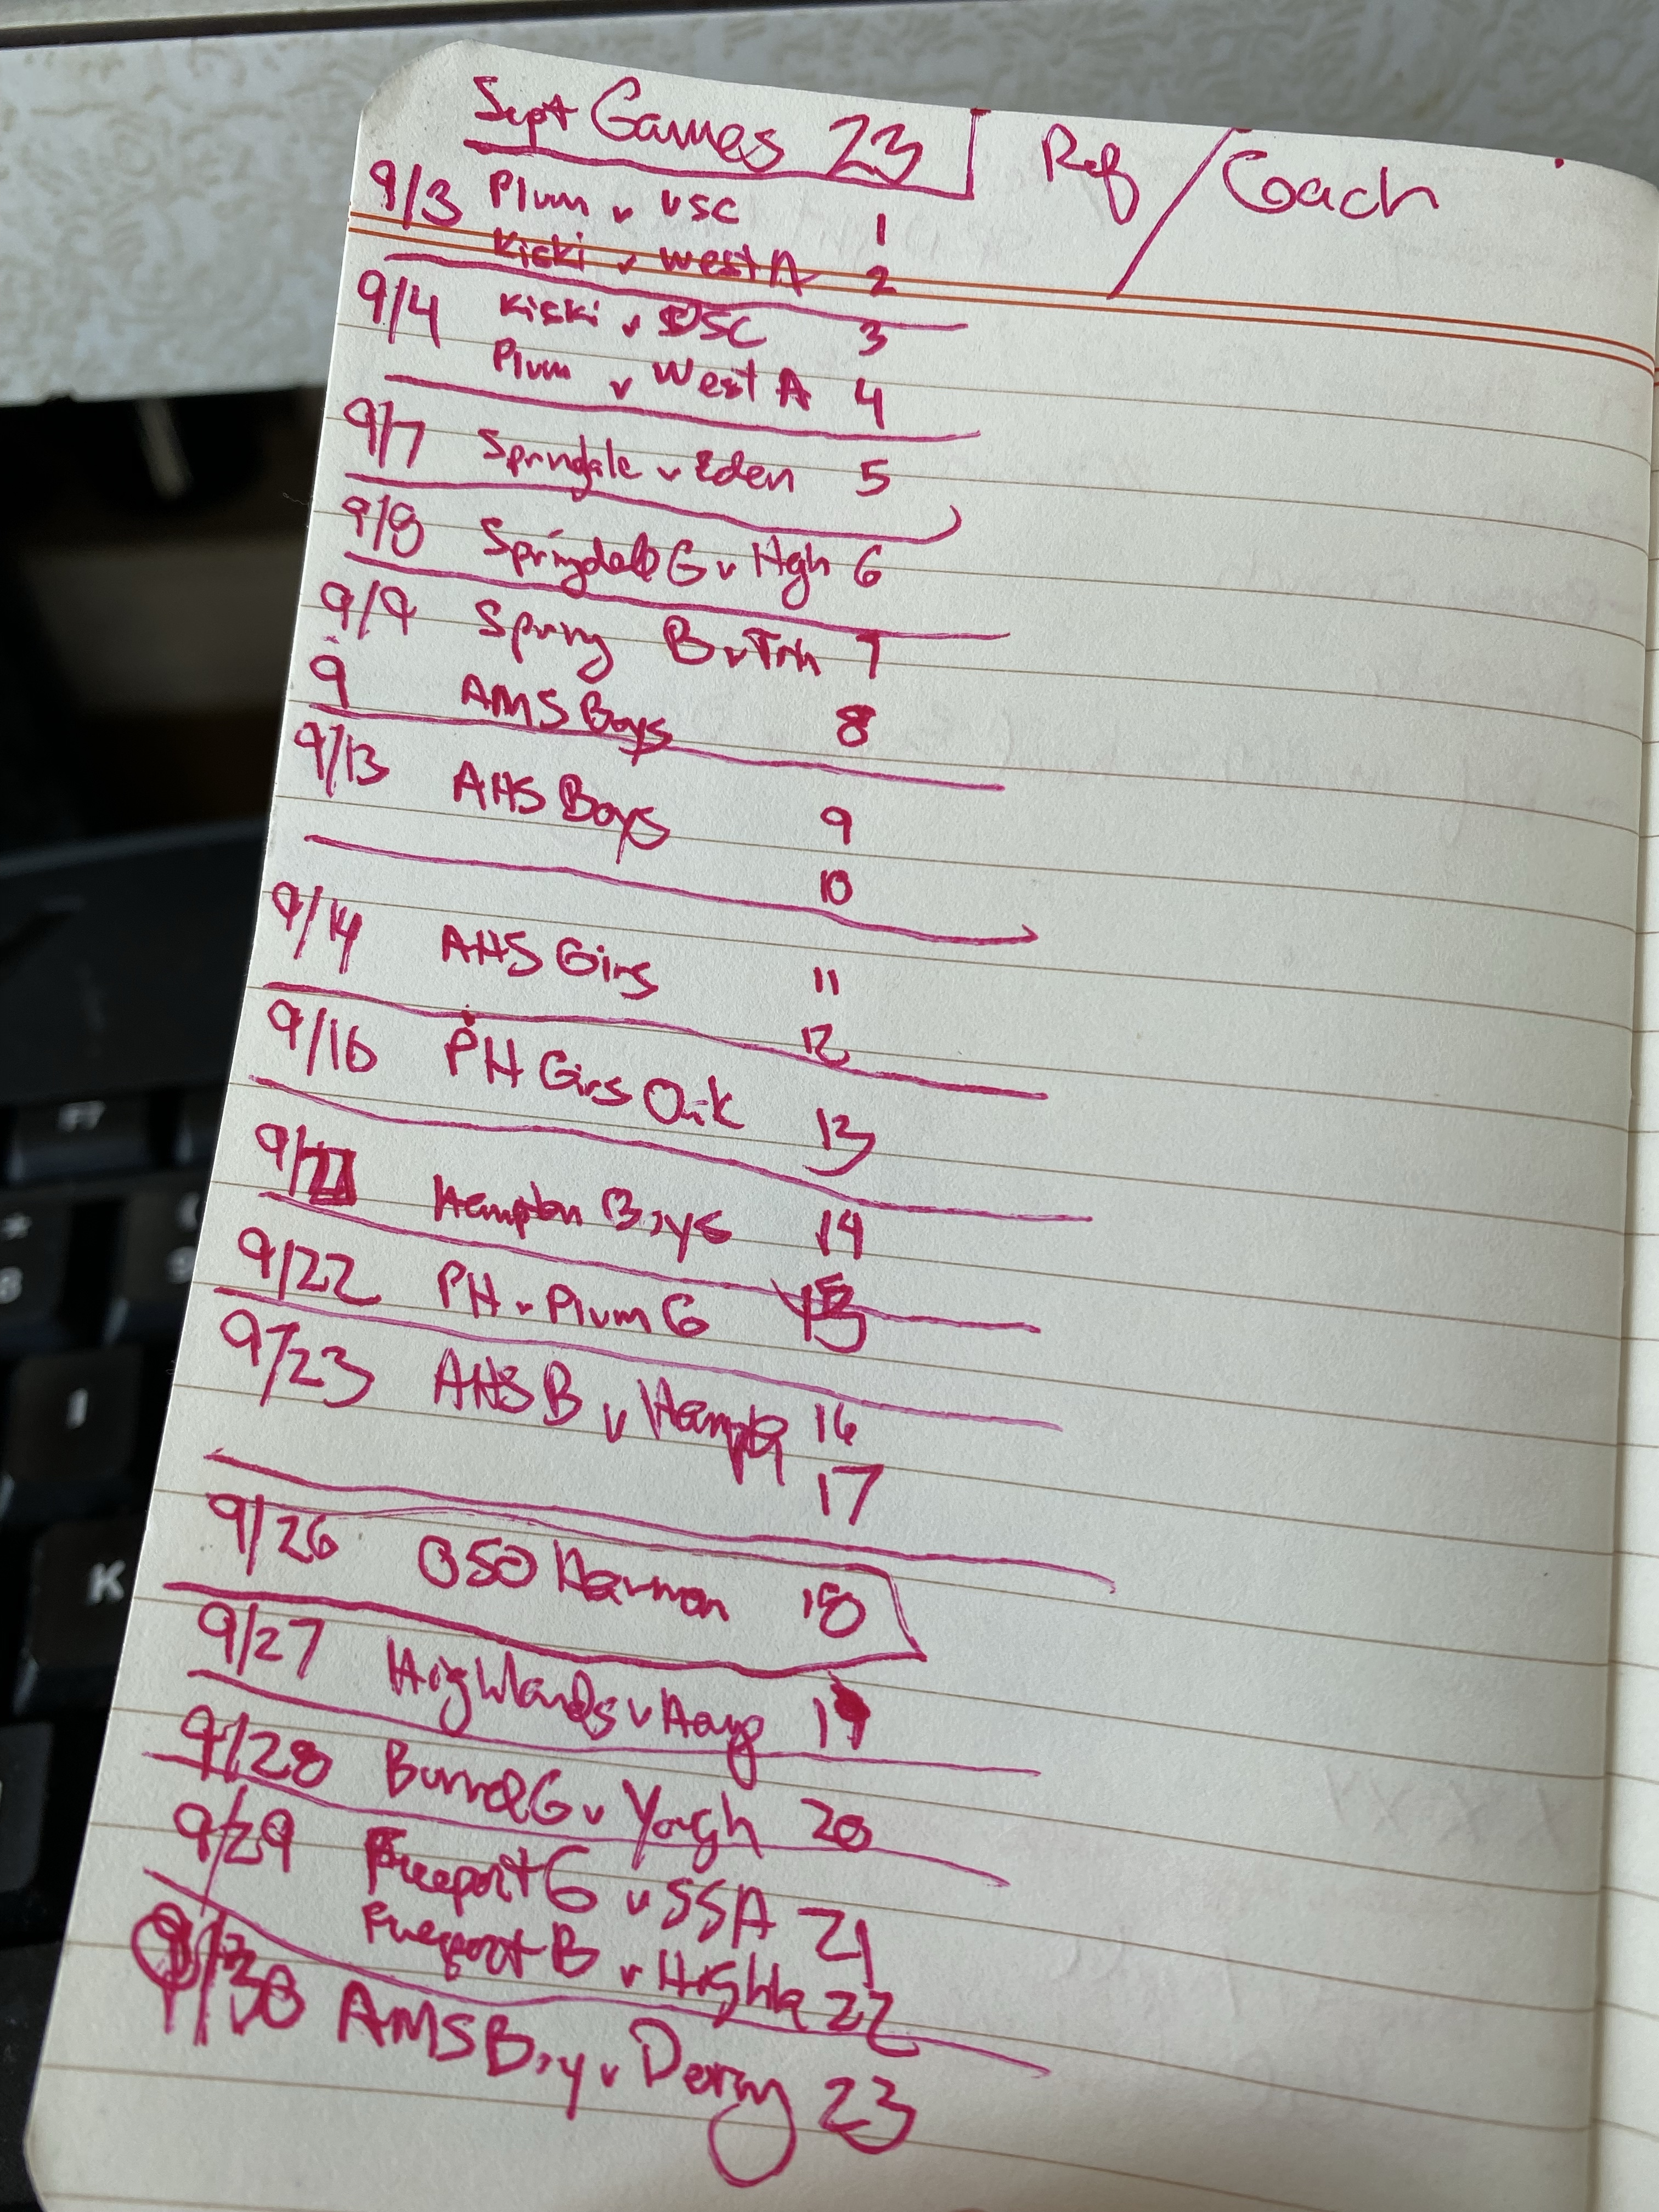 Sept Games 23 Ref / Coach
9/3 Plum v USC 1
Kiski v West A 2
9/4 Kiski v USC 3
Plum v West A 4
9/7 Sprindale v Eden 5
9/8 Springdale G v Hgh 6
9/9 Spring B v Trin 7
9 AMS Boys 8
9/13 AHS Boys 9
10
9/14 AHS Girs 11
12
9/16 PH Girs Oak 13
9/21 Hampton Boys 14
9/22 PH v Plum G 15
9/23 AHS B v Hampton 16
17
9/26 OSO Harmon 18
9/27 Highlands v 19
9/28 Burrel G v Yough 20
9/29 Freeport G v SSA 21
Freeport B v Highla 22
9/30 AMS Boy v Derry 23